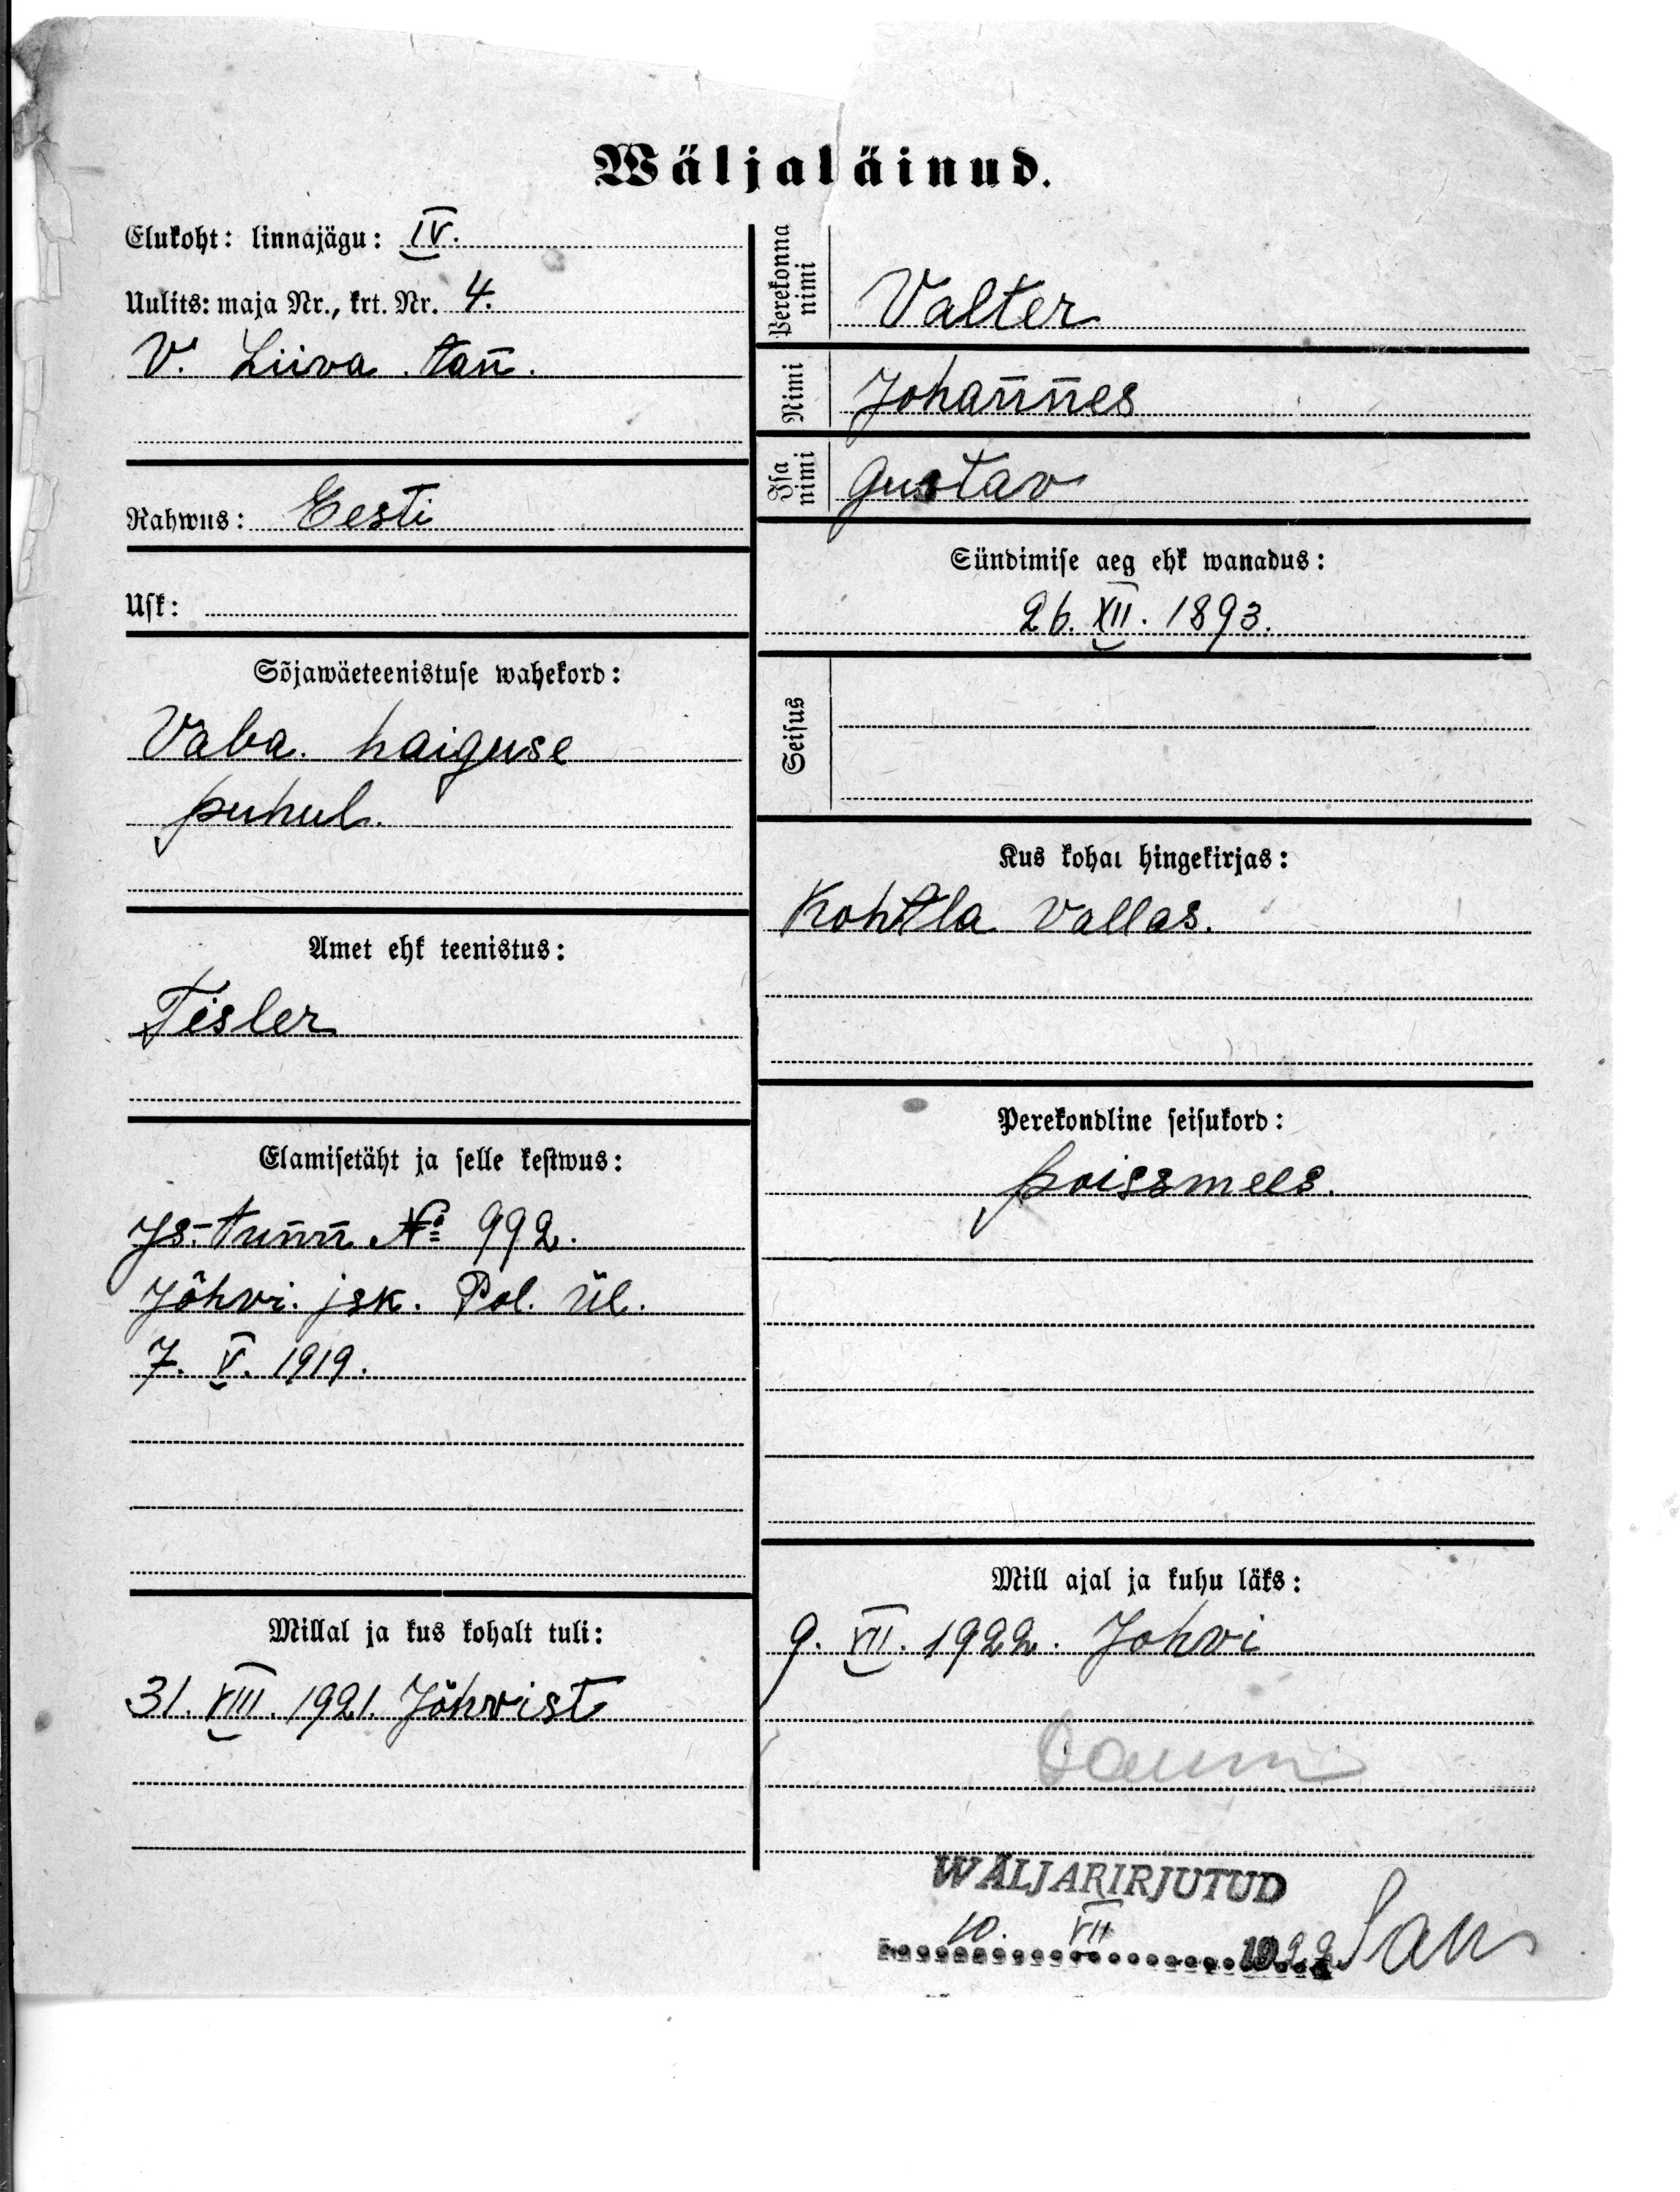 Wäljaläinud.
Elukoht: linnajägu: IV.
Uulits: maja Nr., krt. Nr. 4.
V. Liiva tan̄.
Rahwus: Eesti
Usk:
Sõjawäeteenistuse wahekord:
Vaba haiguse
puhul.
Amet ehk teenistus:
Tisler
Elamisetäht ja selle kestwus:
Is.-tun̄n̄ № 992.
Jõhvi. jsk. Pol. ül.
7. V. 1919.
Millal ja kus kohalt tuli:
31. VIII. 1921. Jõhvist
Perekonna nimi Valter
Nimi Johan̄n̄es
Isa nimi Gustav
Sündimise aeg ehk wanadus:
26. XII. 1893.
Seisus
Kus kohal hingekirjas:
Kohtla vallas.
Perekondline seisukord:
poissmees.
Mill ajal ja kuhu läks:
9. VII. 1922. Johvi
WÄLJARIRJUTUD
10. VII 1922